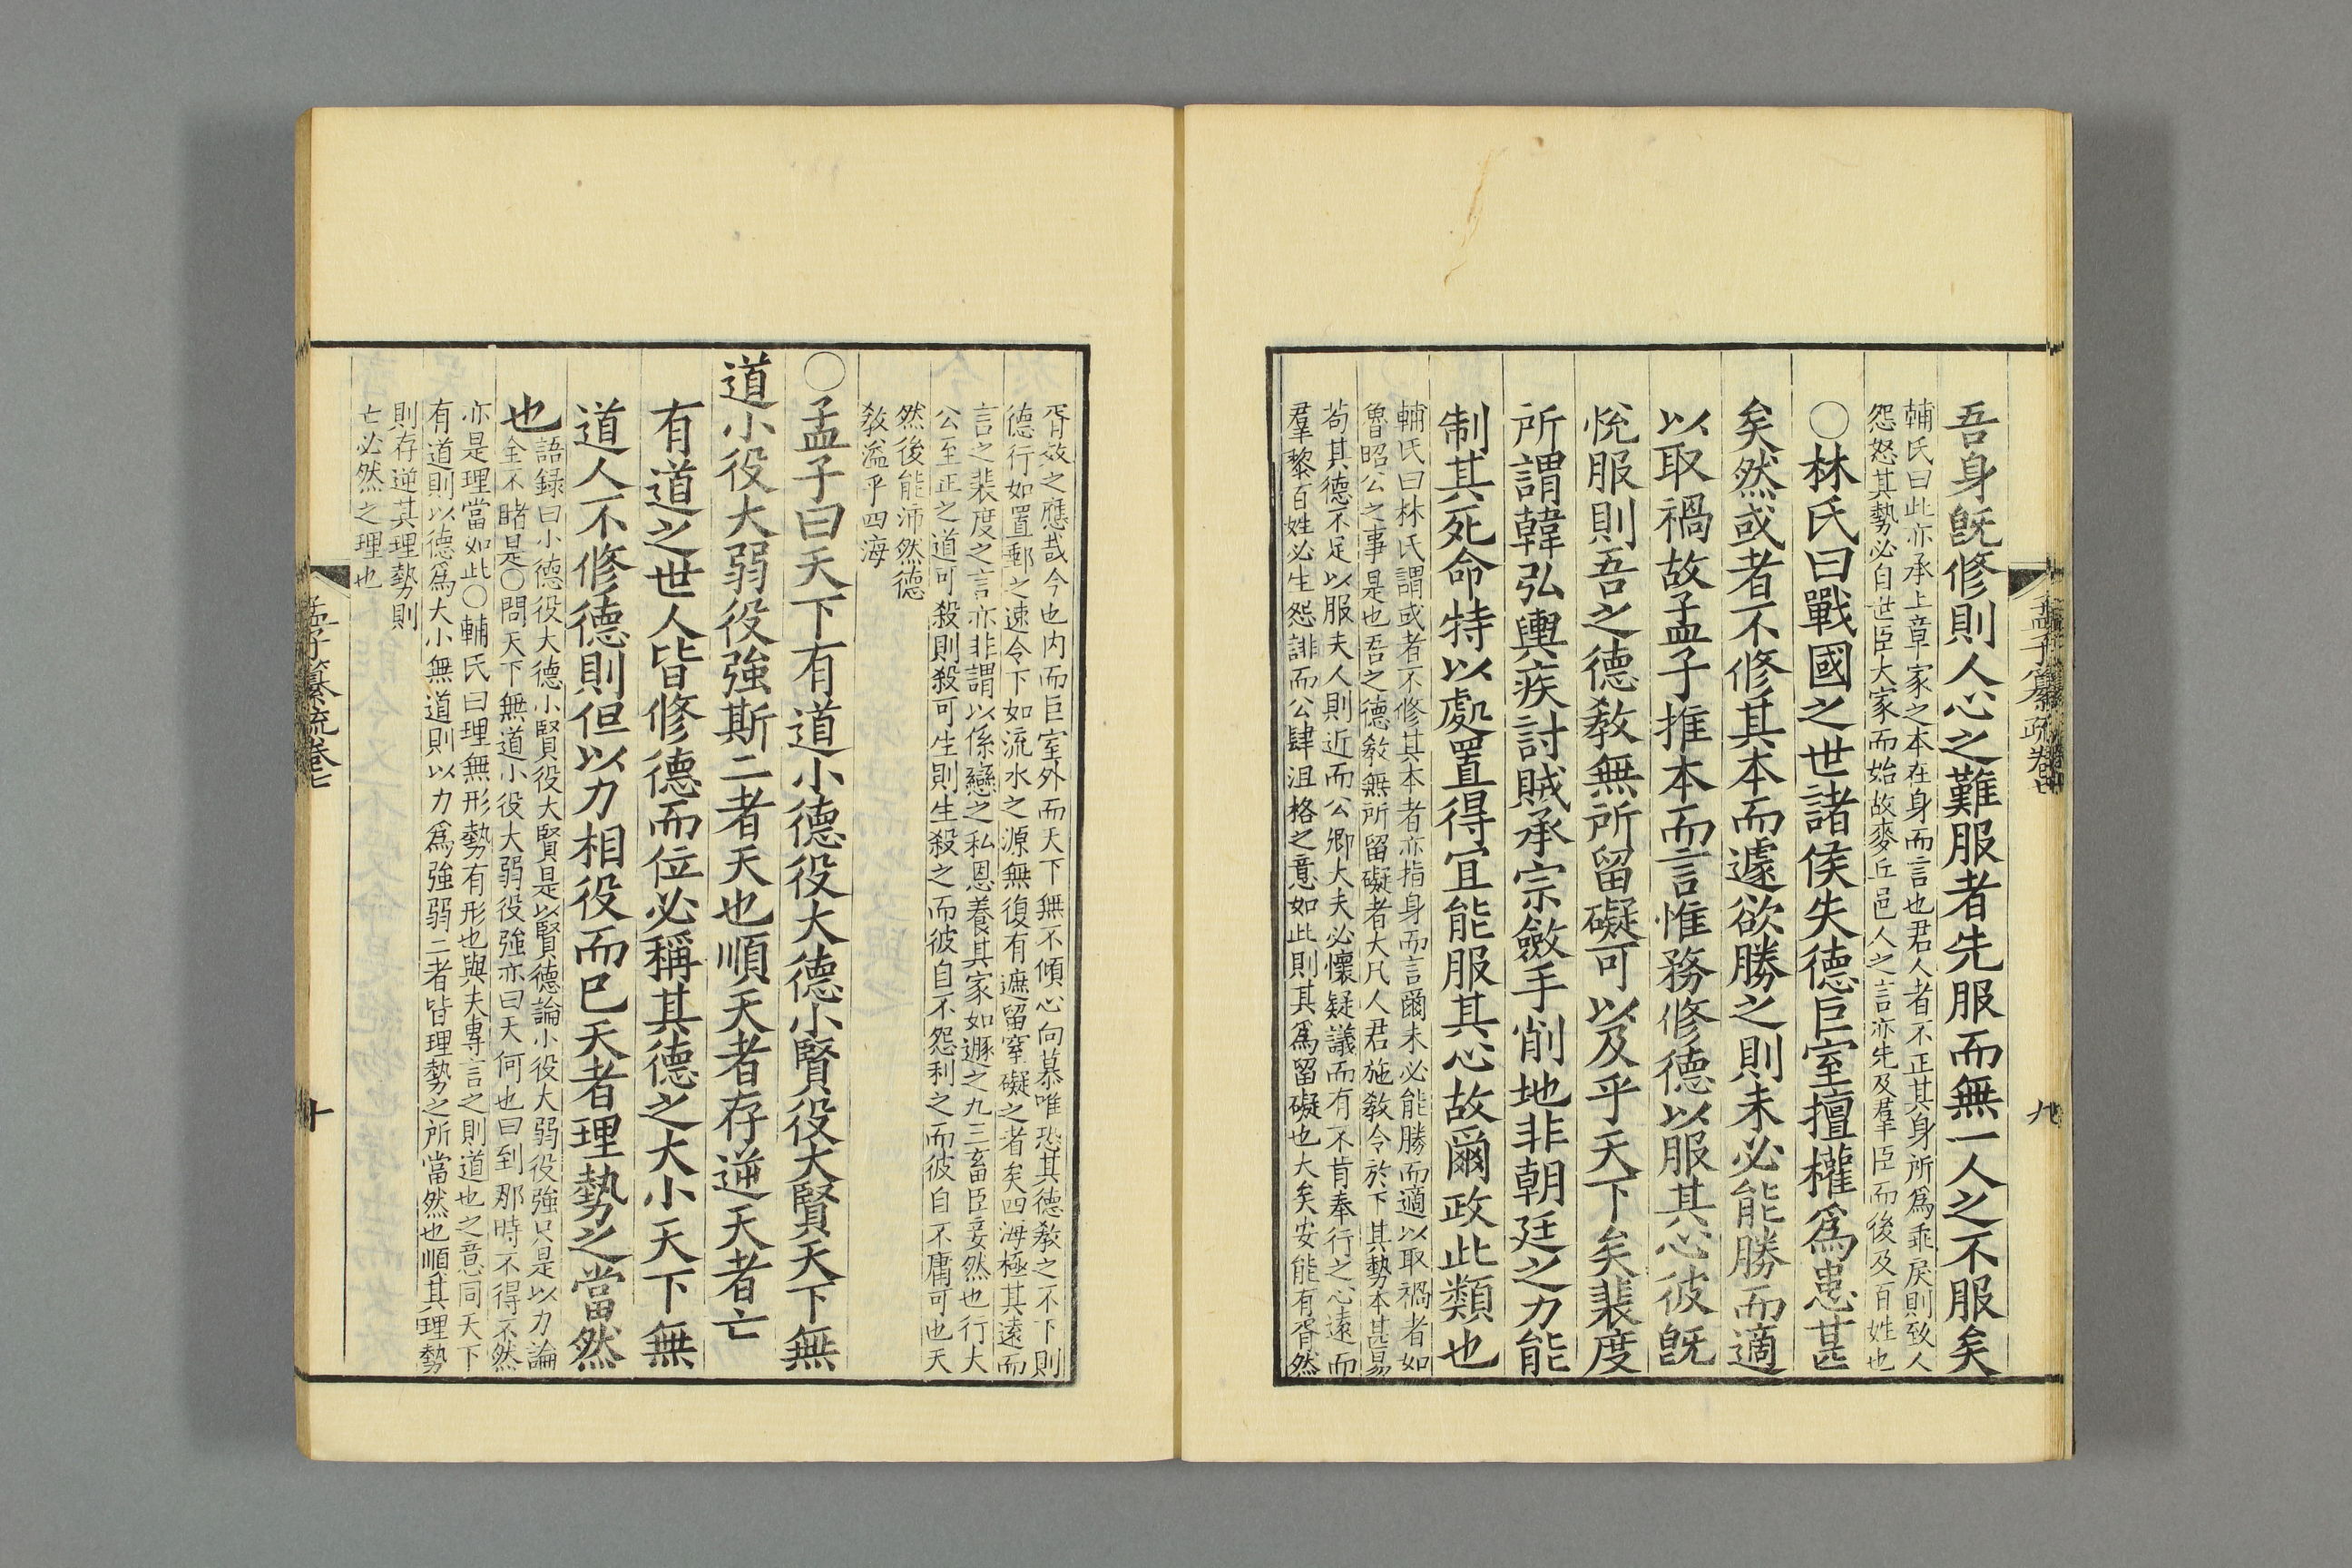 吾身旣修則人心之難服者先服而無一人之不服矣
輔氏曰此亦承上章家之本在身而言也君人者不正其身所爲乖戾則致人
怨怒其勢必自世臣大家而始故麥丘邑人之言亦先及羣臣而後及百姓也
○林氏曰戰國之世諸侯失德巨室擅權爲患甚
矣然或者不修其本而遽欲勝之則未必能勝而適
以取禍故孟子推本而言惟務修德以服其心彼旣
悅服則吾之德敎無所留礙可以及乎天下矣裴度
所謂韓弘輿疾討賊承宗斂手削地非朝廷之力能
制其死命特以處置得宜能服其心故爾政此類也
輔氏曰林氏謂或者不修其本者亦指身而言爾未必能勝而適以取禍者如
魯昭公之事是也吾之德敎無所留礙者大凡人君施敎令於下其勢本甚易
苟其德不足以服夫人則近而公卿大夫必懷疑議而有不肯奉行之心遠而
羣黎百姓必生怨誹而公肆沮格之意如此則其爲留礙也大矣安能有胥然
孟子纂疏卷七
九
胥效之應哉今也內而巨室外而天下無不傾心向慕唯恐其德敎之不下則
德行如置郵之速令下如流水之源無復有遮留窒礙之者矣四海極其遠而
言之裴度之言亦非謂以係戀之私恩養其家如遯之九三畜臣妾然也行大
公至正之道可殺則殺可生則生殺之而彼自不怨利之而彼自不庸可也夫
然後能沛然德
敎溢乎四海
○孟子曰天下有道小德役大德小賢役大賢天下無
道小役大弱役強斯二者天也順天者存逆天者亡
有道之世人皆修德而位必稱其德之大小天下無
道人不修德則但以力相役而已天者理勢之當然
也
語錄曰小德役大德小賢役大賢是以賢德論小役大弱役強只是以力論
全不睹是○問天下無道小役大弱役強亦曰天何也曰到那時不得不然
亦是理當如此○輔氏曰理無形勢有形也與夫專言之則道也之意同天下
有道則以德爲大小無道則以力爲強弱二者皆理勢之所當然也順其理勢
則存逆其理勢則
亡必然之理也
孟子纂疏卷七
十